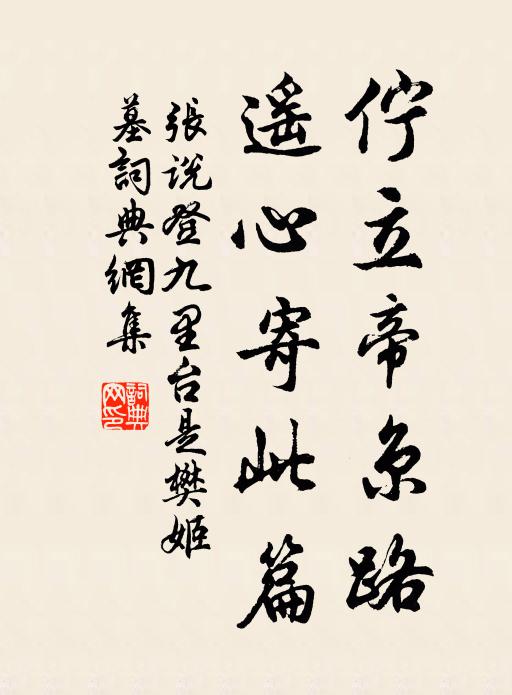 佇立帝京路
遥心寄此篇
張説登九里台是樊姬
墓詞典網集
詞典
网印